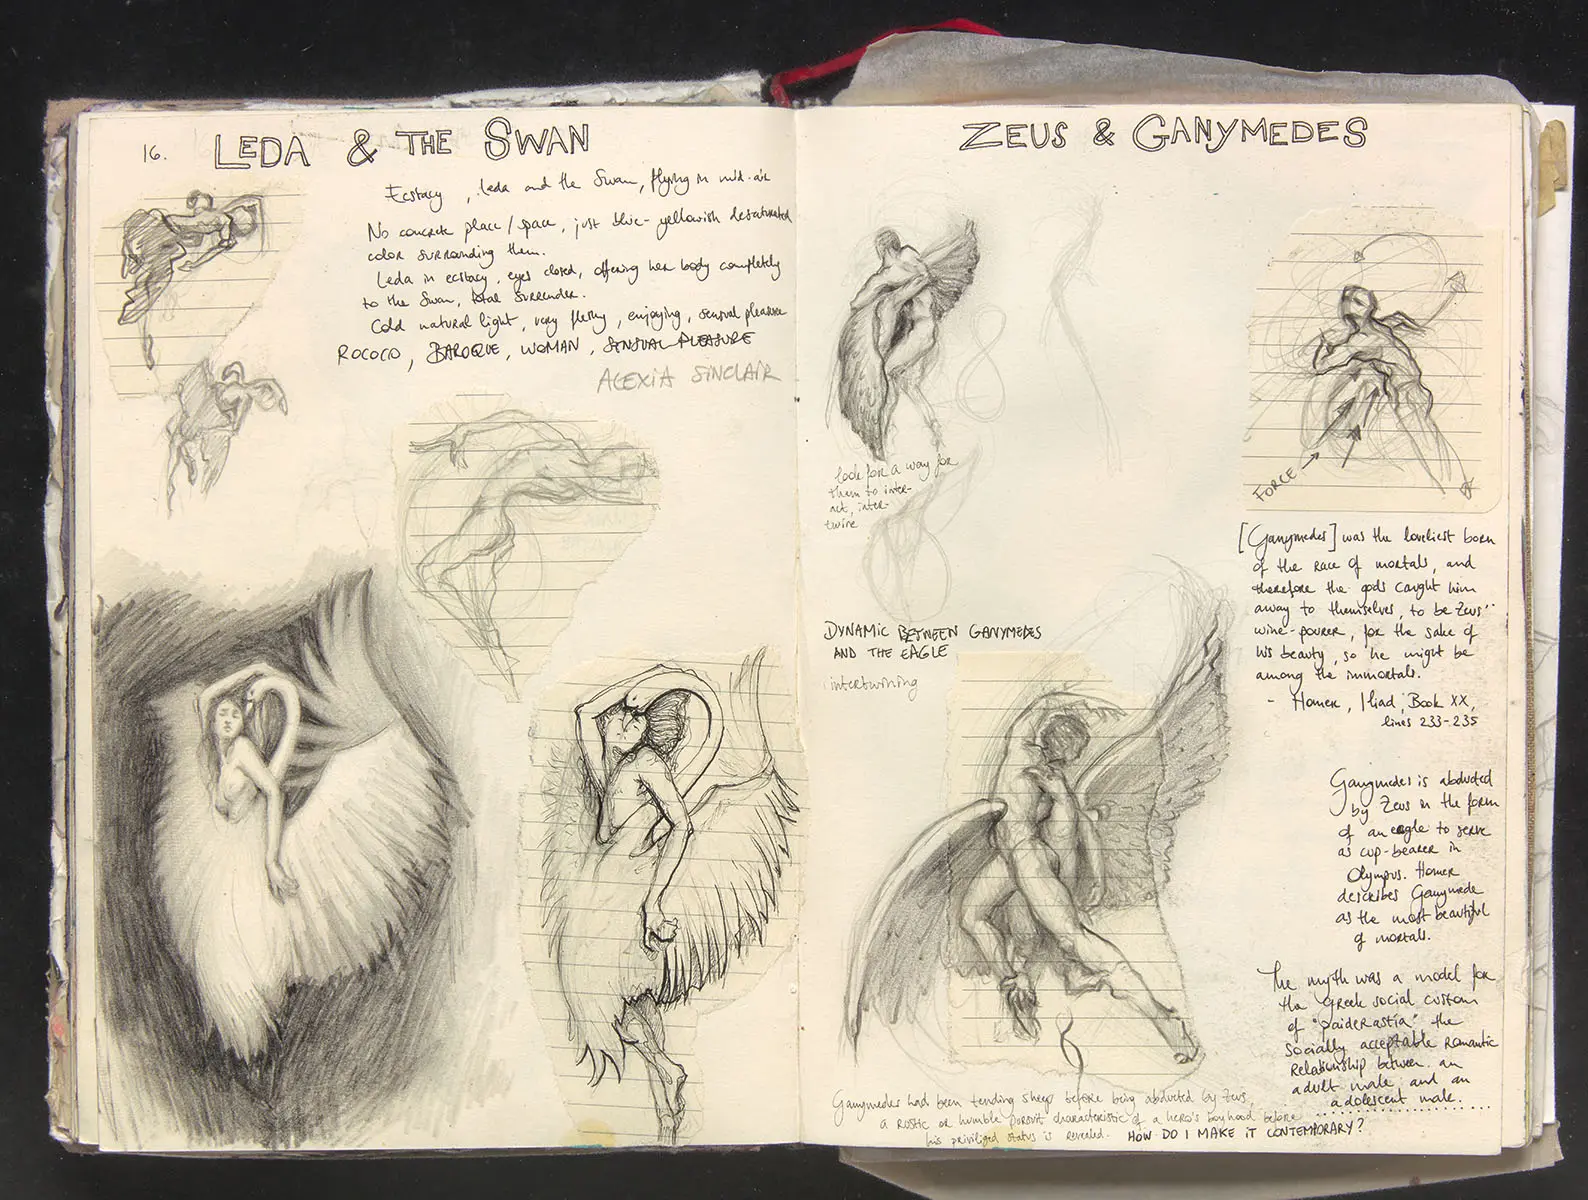 16.
LEDA & THE SWAN
Ecstacy, Leda and the Swan, flying in mid-air
No concrete place/space, just blue-yellowish desaturated
color surrounding them.
Leda in ecstacy, eyes closed, offering her body completely
to the Swan, total surrender.
Cold natural light, very fleshy, enjoying, sensual pleasure
ROCOCO, BAROQUE, WOMAN, SENSUAL PLEASURE
ALEXIA SINCLAIR
ZEUS & GANYMEDES
look for a way for
them to inter-
act, inter-
twine
FORCE
DYNAMIC BETWEEN GANYMEDES
AND THE EAGLE
intertwining
[Ganymedes] was the loveliest born
of the race of mortals, and
therefore the gods caught him
away to themselves, to be Zeus'
wine-pourer, for the sake of
his beauty, so he might be
among the immortals.
- Homer, Iliad, Book XX,
lines 233-235
Ganymedes is abducted
by Zeus in the form
of an eagle to serve
as cup-bearer in
Olympus. Homer
describes Ganymede
as the most beautiful
of mortals.
The myth was a model for
the Greek social custom
of "paiderastía" the
socially acceptable romantic
relationship between an
adult male and an
adolescent male.
Ganymedes had been tending sheep before being abducted by Zeus,
a rustic or humble pursuit characteristic of a hero's boyhood before
his priviliged status is revealed. HOW DO I MAKE IT CONTEMPORARY?